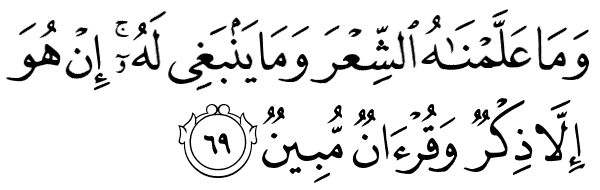 وَمَا عَلَّمْنَـٰهُ ٱلشِّعْرَ وَمَا يَنۢبَغِى لَهُۥٓ ۚ إِنْ هُوَ
إِلَّا ذِكْرٌ وَقُرْءَانٌ مُّبِينٌ ٦٩